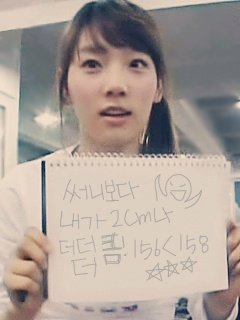 써니보다 No
내가 2cm나
더더 큼. 156<158
더 ☆☆☆